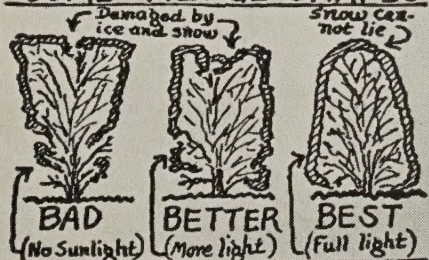 Damaged by
ice and snow
Snow can-
not lie
BAD
(No Sunlight)
BETTER
(More light)
BEST
(Full light)